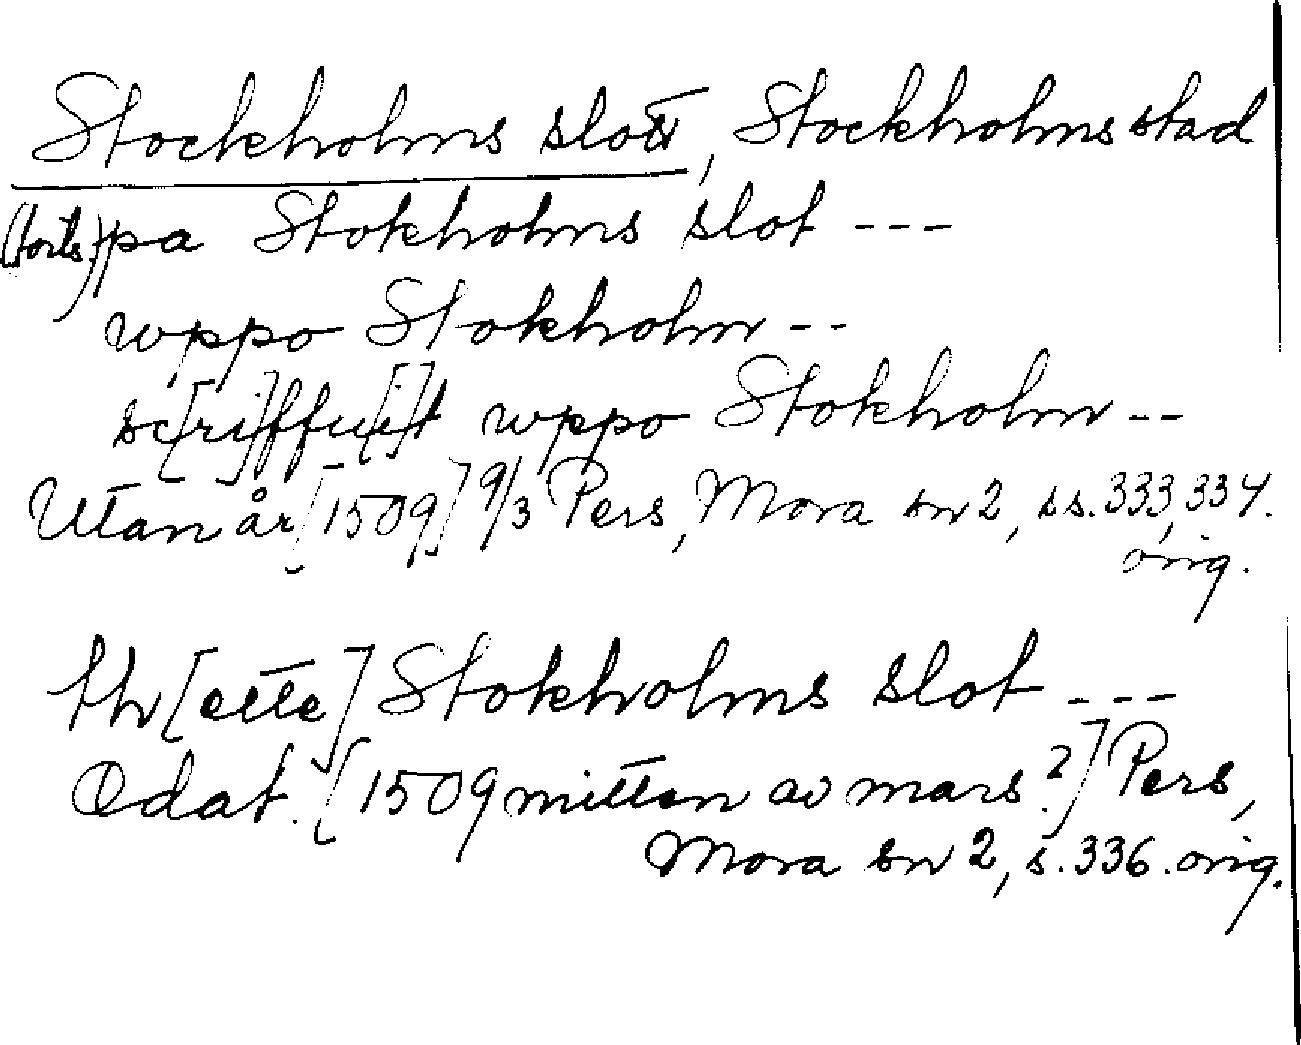 Stockholms slott, Stockholms stad
(forts.) pa Stokholms slot ---
wppo Stokholm --
sc[ri]ffu[i]t wppo Stokholm --
Utan år [1509] 9/3 Pers, Mora sn 2, ss. 333, 334.
orig.
th[ette] Stokholms slot ---
Odat. [1509 mitten av mars?] Pers,
Mora sn 2, s. 336. orig.